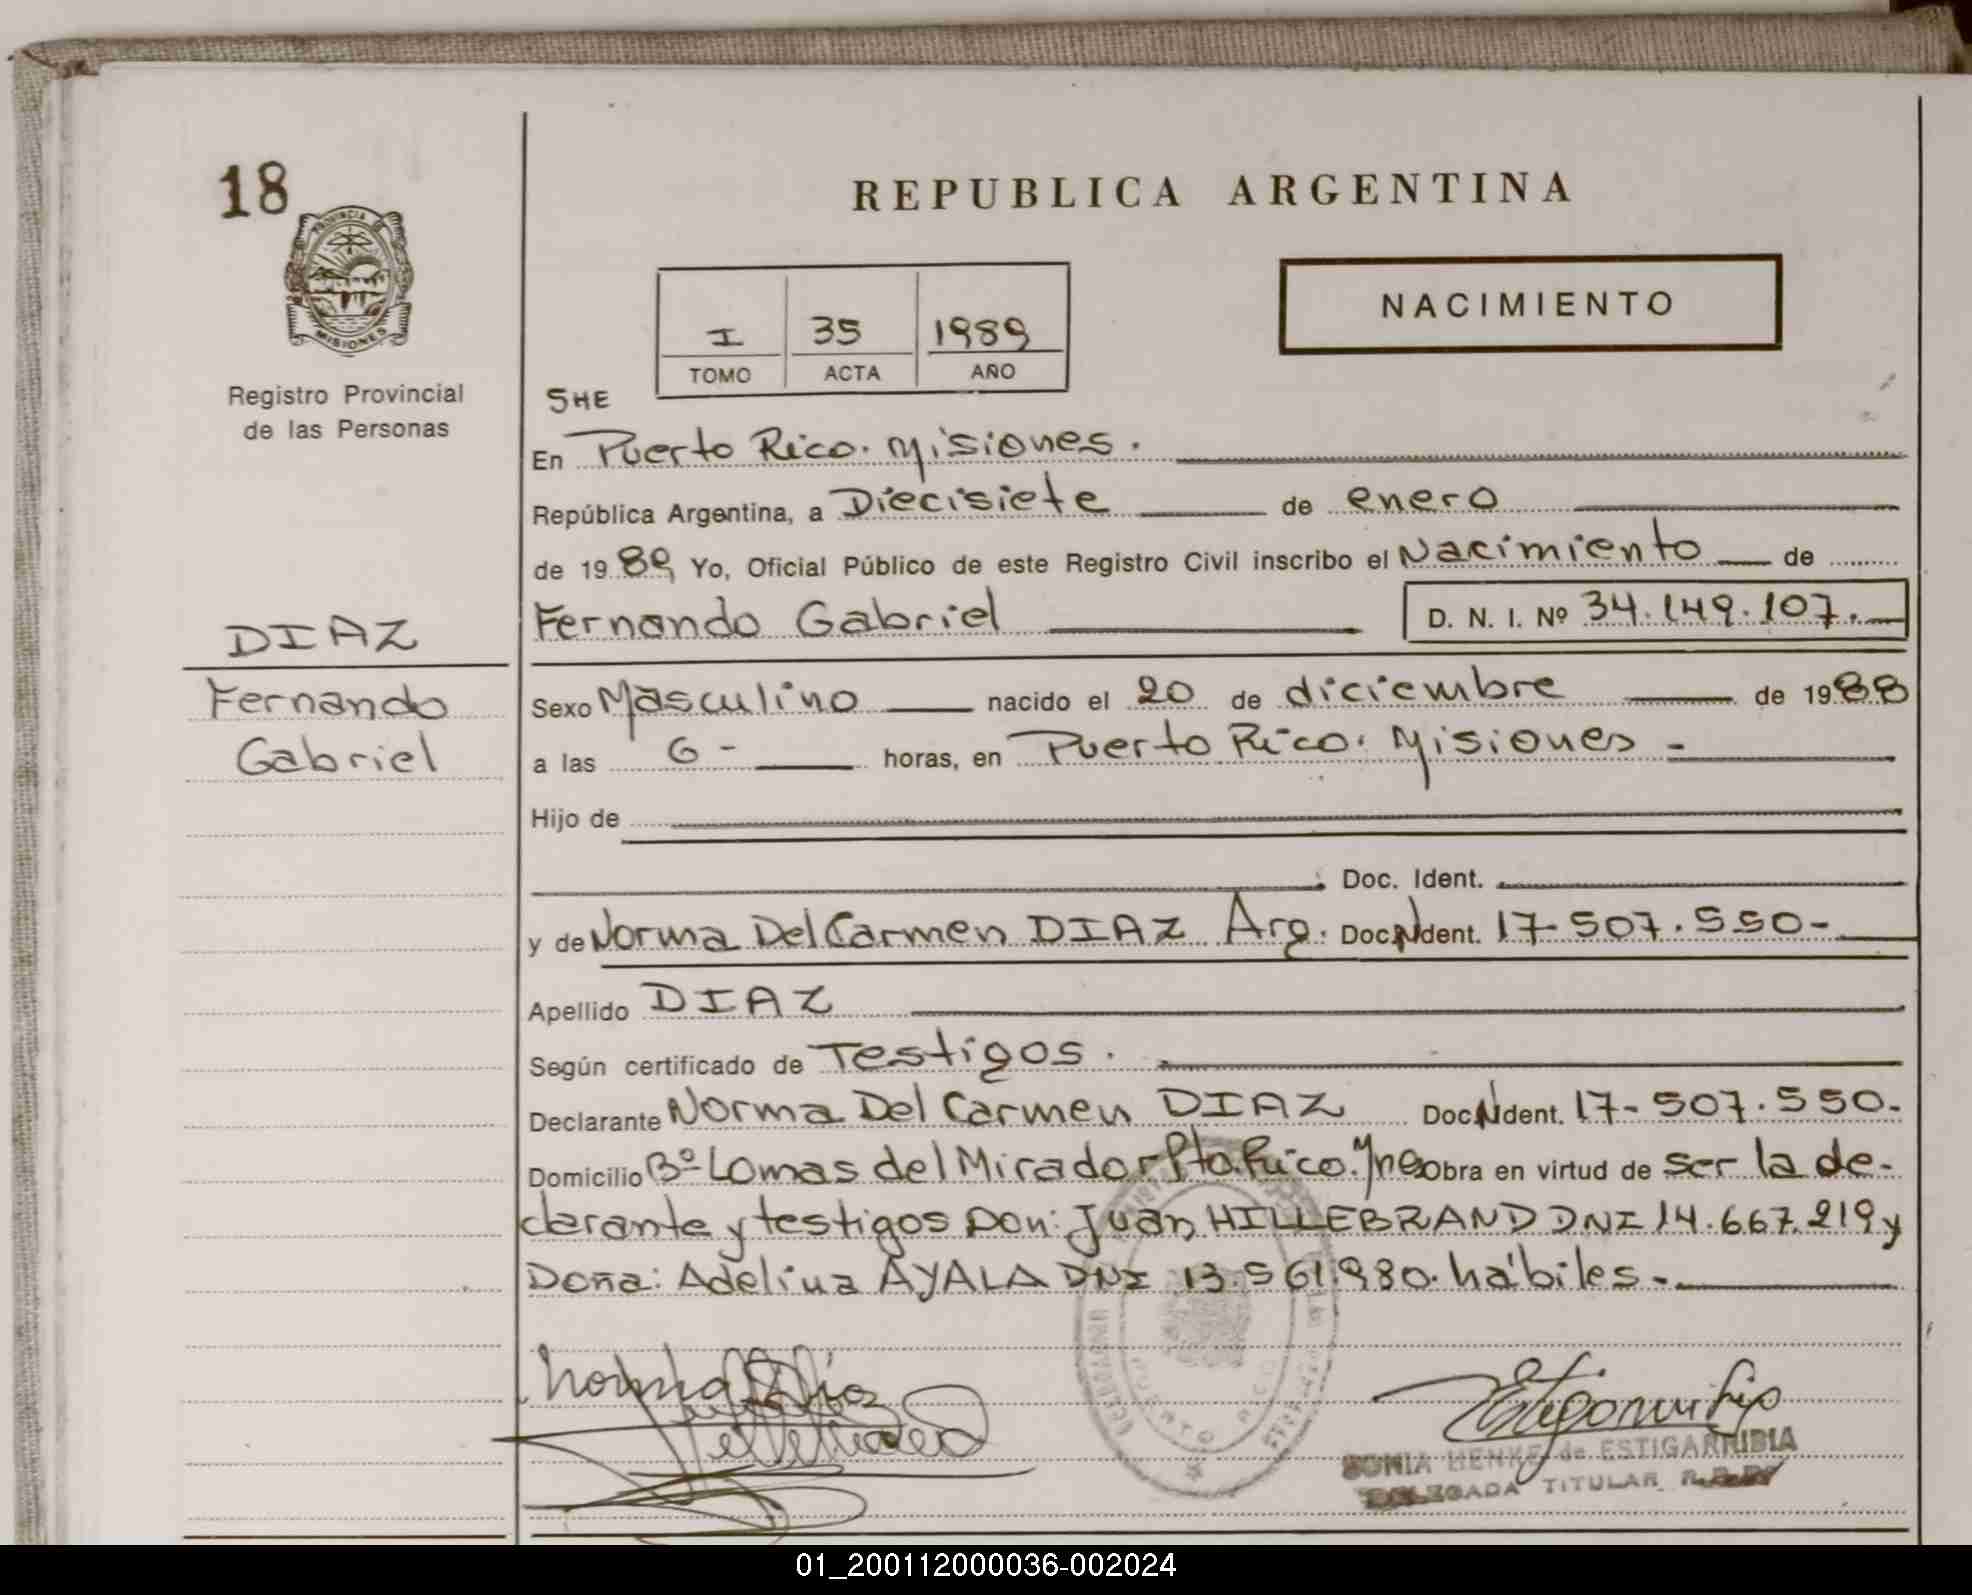 18
PROVINCIA
MISIONES
Registro Provincial
de las Personas
DIAZ
Fernando
Gabriel
REPUBLICA ARGENTINA
I 35 1989
TOMO ACTA AÑO
NACIMIENTO
SHE
En Puerto Rico. Misiones.
República Argentina, a Diecisiete de enero
de 1989 Yo, Oficial Público de este Registro Civil inscribo el Nacimiento de
Fernando Gabriel D. N. I. Nº 34.149.107.
Sexo Masculino nacido el 20 de diciembre de 1988
a las 6- horas, en Puerto Rico. Misiones -
Hijo de
Doc. Ident.
y de Norma Del Carmen DIAZ Arg. Doc. Ident. 17-507.550-
Apellido DIAZ
Según certificado de Testigos.
Declarante Norma Del Carmen DIAZ Doc. Ident. 17-507.550.
Domicilio Bº Lomas del Mirador Pto. Rico. Mnes Obra en virtud de ser la de-
clarante y testigos Don: Juan HILLEBRAND DNI 14.667.219 y
Doña: Adelina AYALA DNI 13.561.980. hábiles.
Norma Díaz
PUERTO RICO
SONIA HENKE de ESTIGARRIBIA
DELEGADA TITULAR
01_200112000036-002024